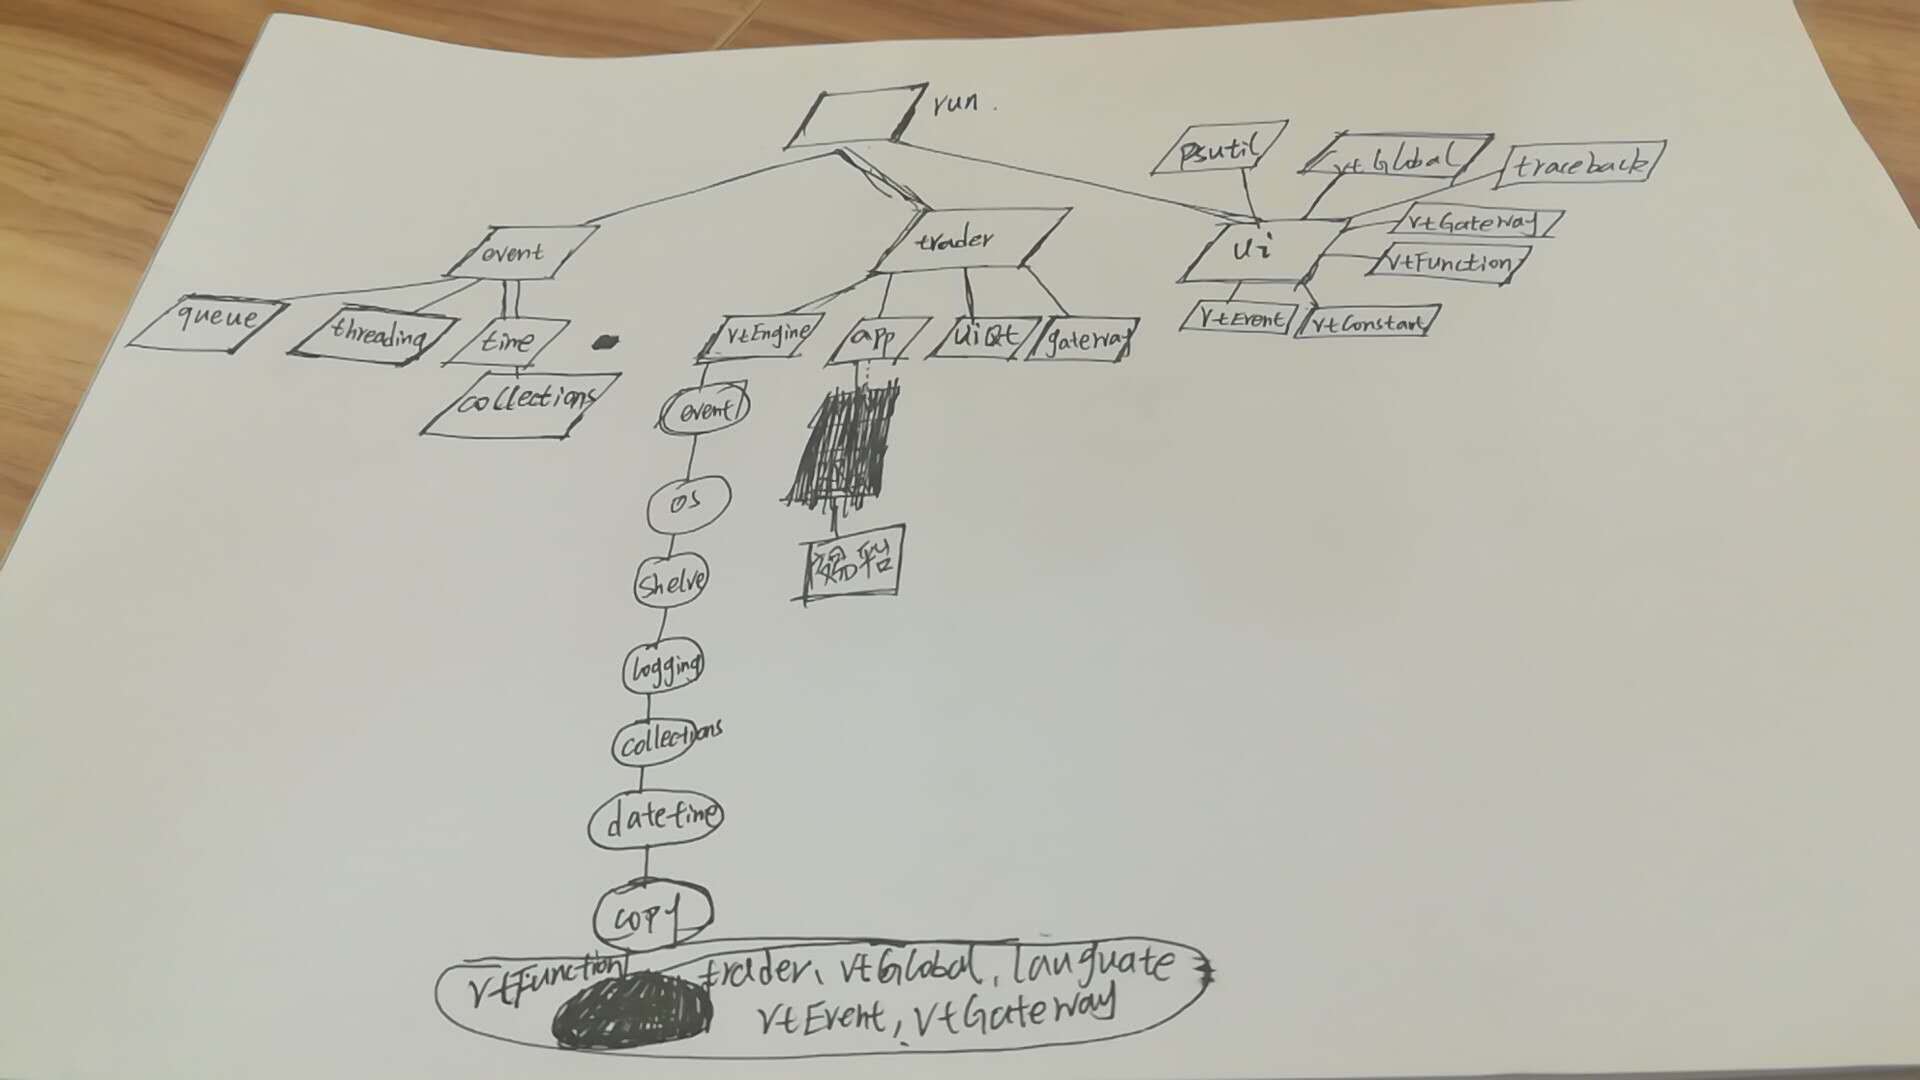 run.
psutil
vtGlobal
traceback
event
trader
ui
vtGateway
vtFunction
queue
threading
time
vtEngine
app
uiQt
gateway
vtEvent
vtConstant
collections
event
os
shelve
logging
collections
datetime
copy
vtFunction
trader、vtGlobal, lauguate
vtEvent, vtGateway